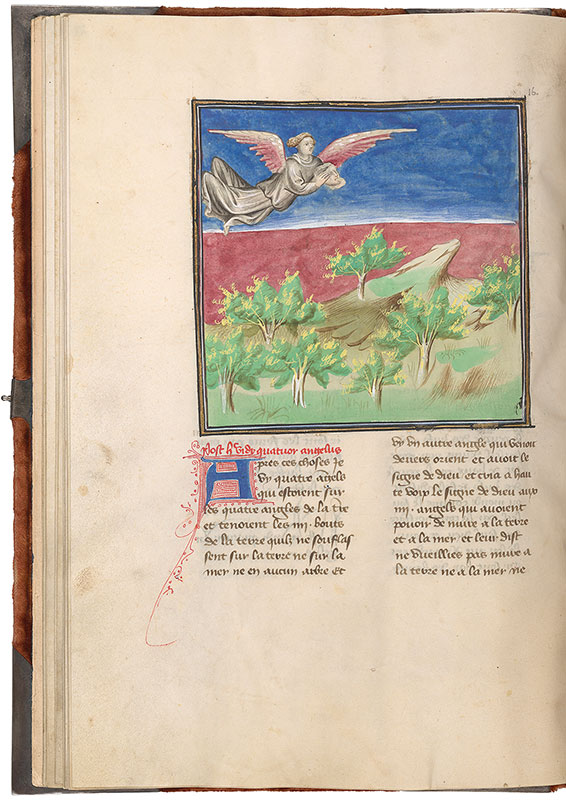 16.
Post h̄ vidy quatuor angelus
Apres ces choses Je
vy quatre agels
qui estoient sur
les quatre angles de la t̄re
et tenoient les iiij. bouts
de la terre quilz ne souflas
sent sur la terre ne sur la
mer ne en aucun arbre Et
vy vn autre angle qui venoit
deuers orient et auoit le
signe de dieu et cria a hau
te voix le signe de dieu aux
iiij. angels qui auoient
pouoir de nuire a la terre
et a la mer et leur dist
ne vueillies pas nuire a
la terre ne a la mer ne